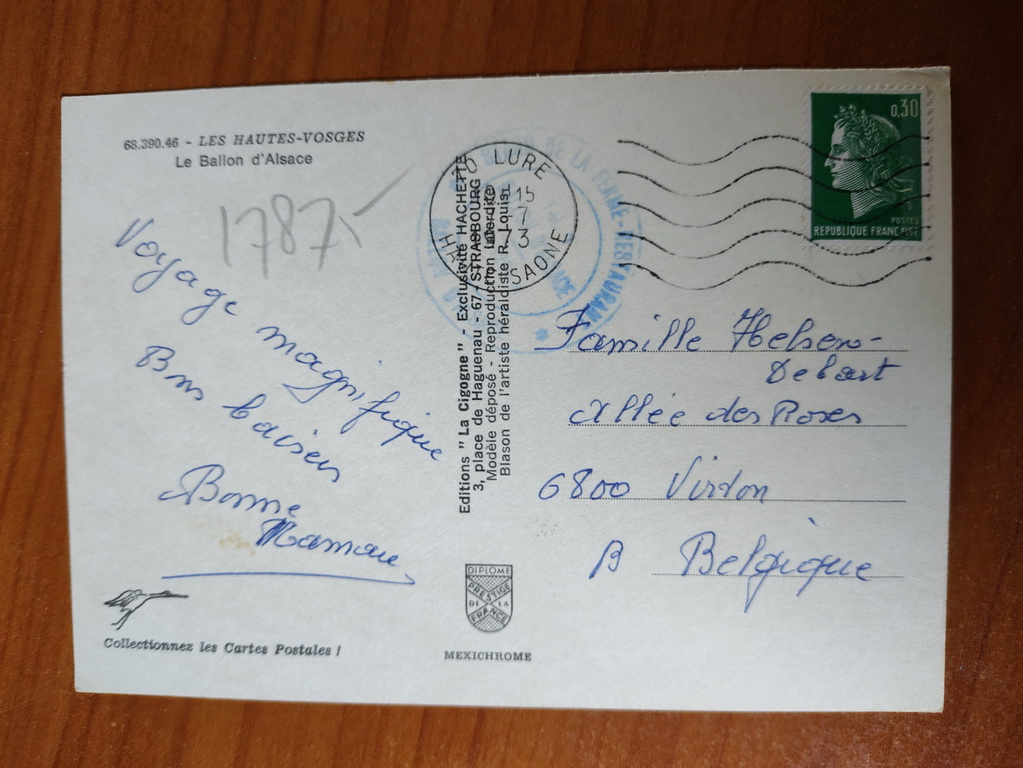 68.390.46 - LES HAUTES-VOSGES
Le Ballon d'Alsace
1787,-
Voyage magnifique
Bons baisers
Bonne
Maman
Collectionnez les Cartes Postales !
Editions "La Cigogne" - Exclusivité HACHETTE
3, place de Haguenau - 67 - STRASBOURG
Modèle déposé - Reproduction interdite
Blason de l'artiste héraldiste R. Louis
DIPLOME
PRESTIGE
DE LA
FRANCE
MEXICHROME
70 LURE
15
7
3
HTE SAONE
DE LA FERME-RESTAURANT
0,30
POSTES
REPUBLIQUE FRANCAISE
Famille
Allée des Roses
6800 Virton
B Belgique